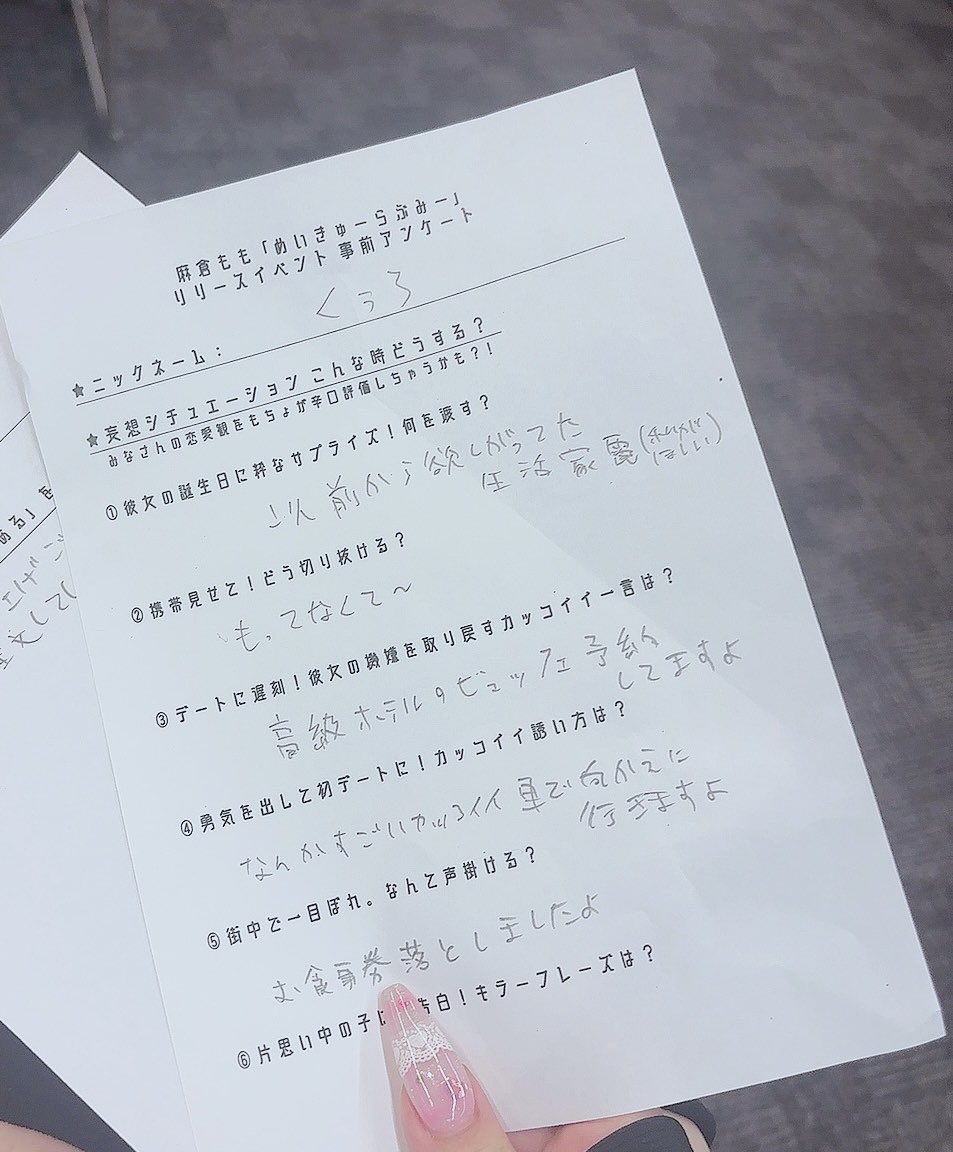 麻倉もも「めいきゅーらぶみー」
リリースイベント 事前アンケート
★ニックネーム： くぅろ
★妄想シチュエーション こんな時どうする？
みなさんの恋愛観をもちょが辛口評価しちゃうかも？！
①彼女の誕生日に粋なサプライズ！何を渡す？
以前から欲しがってた
生活家電(私が
ほしい)
②携帯見せて！どう切り抜ける？
もってなくて～
③デートに遅刻！彼女の機嫌を取り戻すカッコイイ一言は？
高級ホテルのビュッフェ予約
してますよ
④勇気を出して初デートに！カッコイイ誘い方は？
なんかすごいカッコイイ車で向かえに
行きますよ
⑤街中で一目ぼれ。なんて声掛ける？
お食事券落としましたよ
⑥片思い中の子に 告白！キラーフレーズは？
ある」を